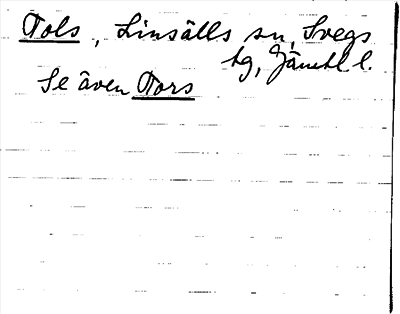 Tols, Linsälls sn, Svegs
tg, Jämtl l.
Se även Tors